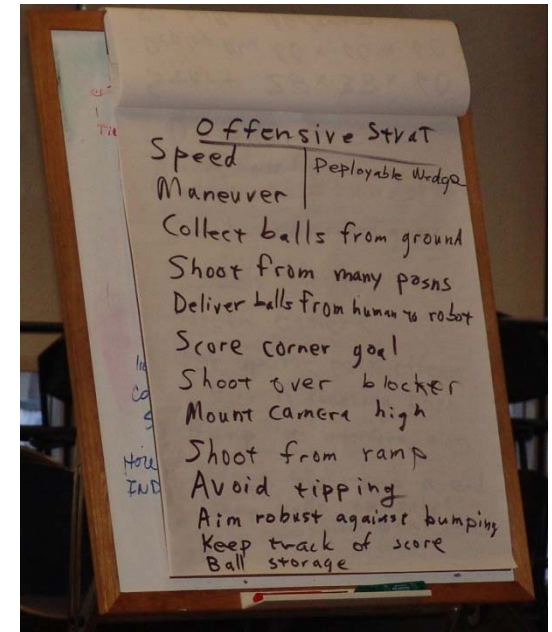 Offensive Strat
Speed
Deployable Wedge
Maneuver
Collect balls from ground
Shoot from many posns
Deliver balls from human to robot
Score corner goal
Shoot over blocker
Mount camera high
Shoot from ramp
Avoid tipping
Aim robust against bumping
Keep track of score
Ball storage
IND